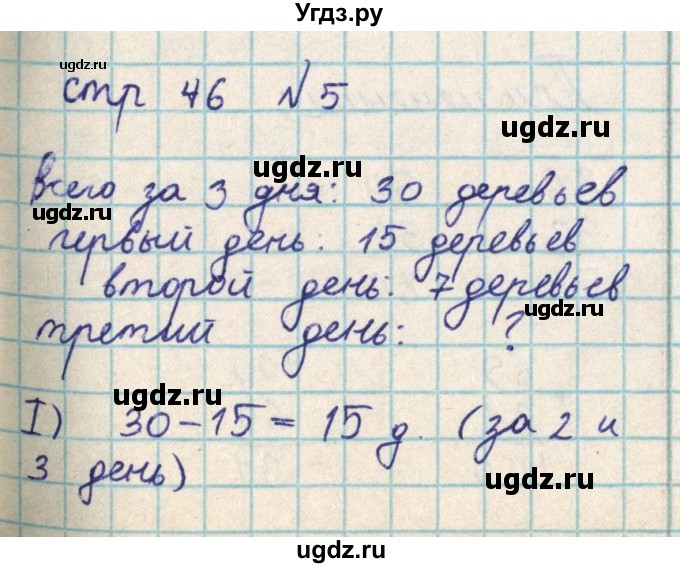 Угдз.ру
ugdz.ru
стр 46 №5
ugdz.ru
Всего за 3 дня: 30 деревьев
ugdz.ru
первый день: 15 деревьев
второй день: 7 деревьев
ugdz.ru ugdz.ru
третий день: ?
ugdz.ru
I) 30-15= 15 д. (за 2 и
3 день)
ugdz.ru
ugdz.ru
ugdz.ru